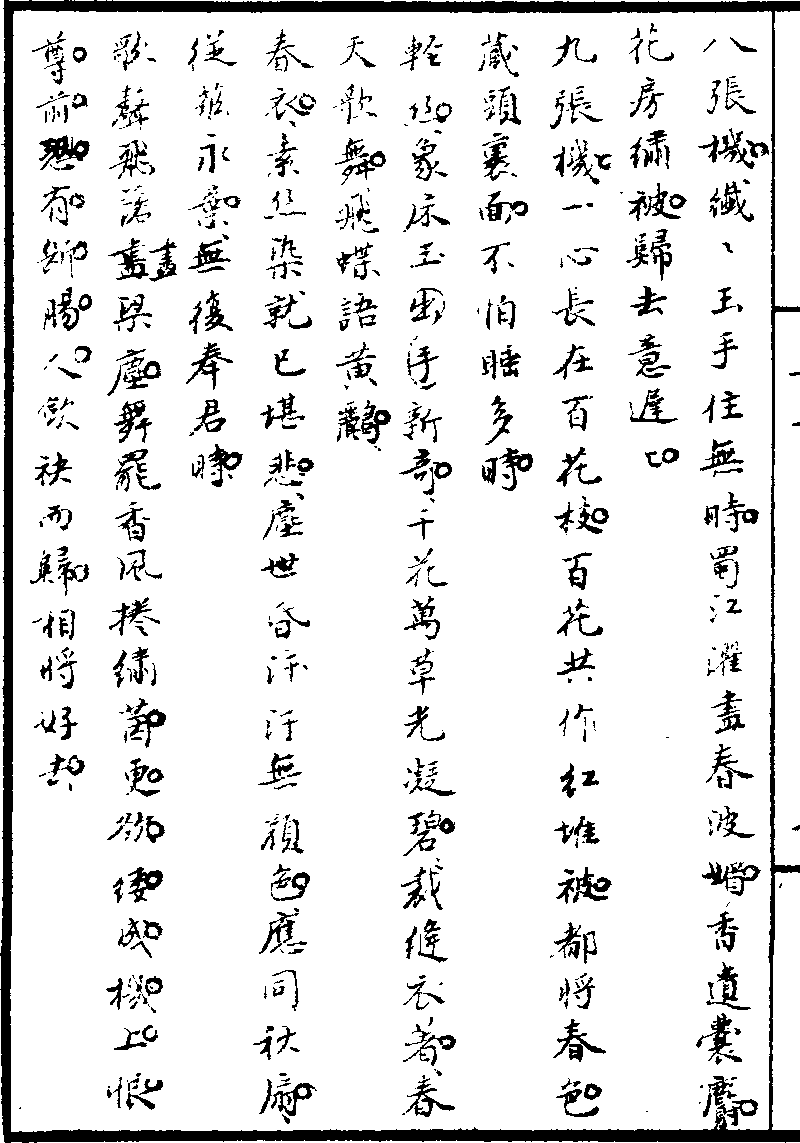 八張機纖〻玉手住無時蜀江濯盡春波媚香遺囊麝
花房繡被歸去意遲〻
九張機一心長在百花枝百花共作紅堆被都將春色
藏頭裏面不怕睡多時
輕絲象床玉出手新奇千花萬草光凝碧裁縫衣著春
天歌舞飛蝶語黃鸝
春衣素絲染就已堪悲塵世昏汙汙無顏色應同秋扇
從茲永棄無復奉君時
歌聲飛落畫梁塵舞罷香風捲繡茵更欲縷成機上恨
畫
尊前恐有斷腸人歛袂而歸相將好去